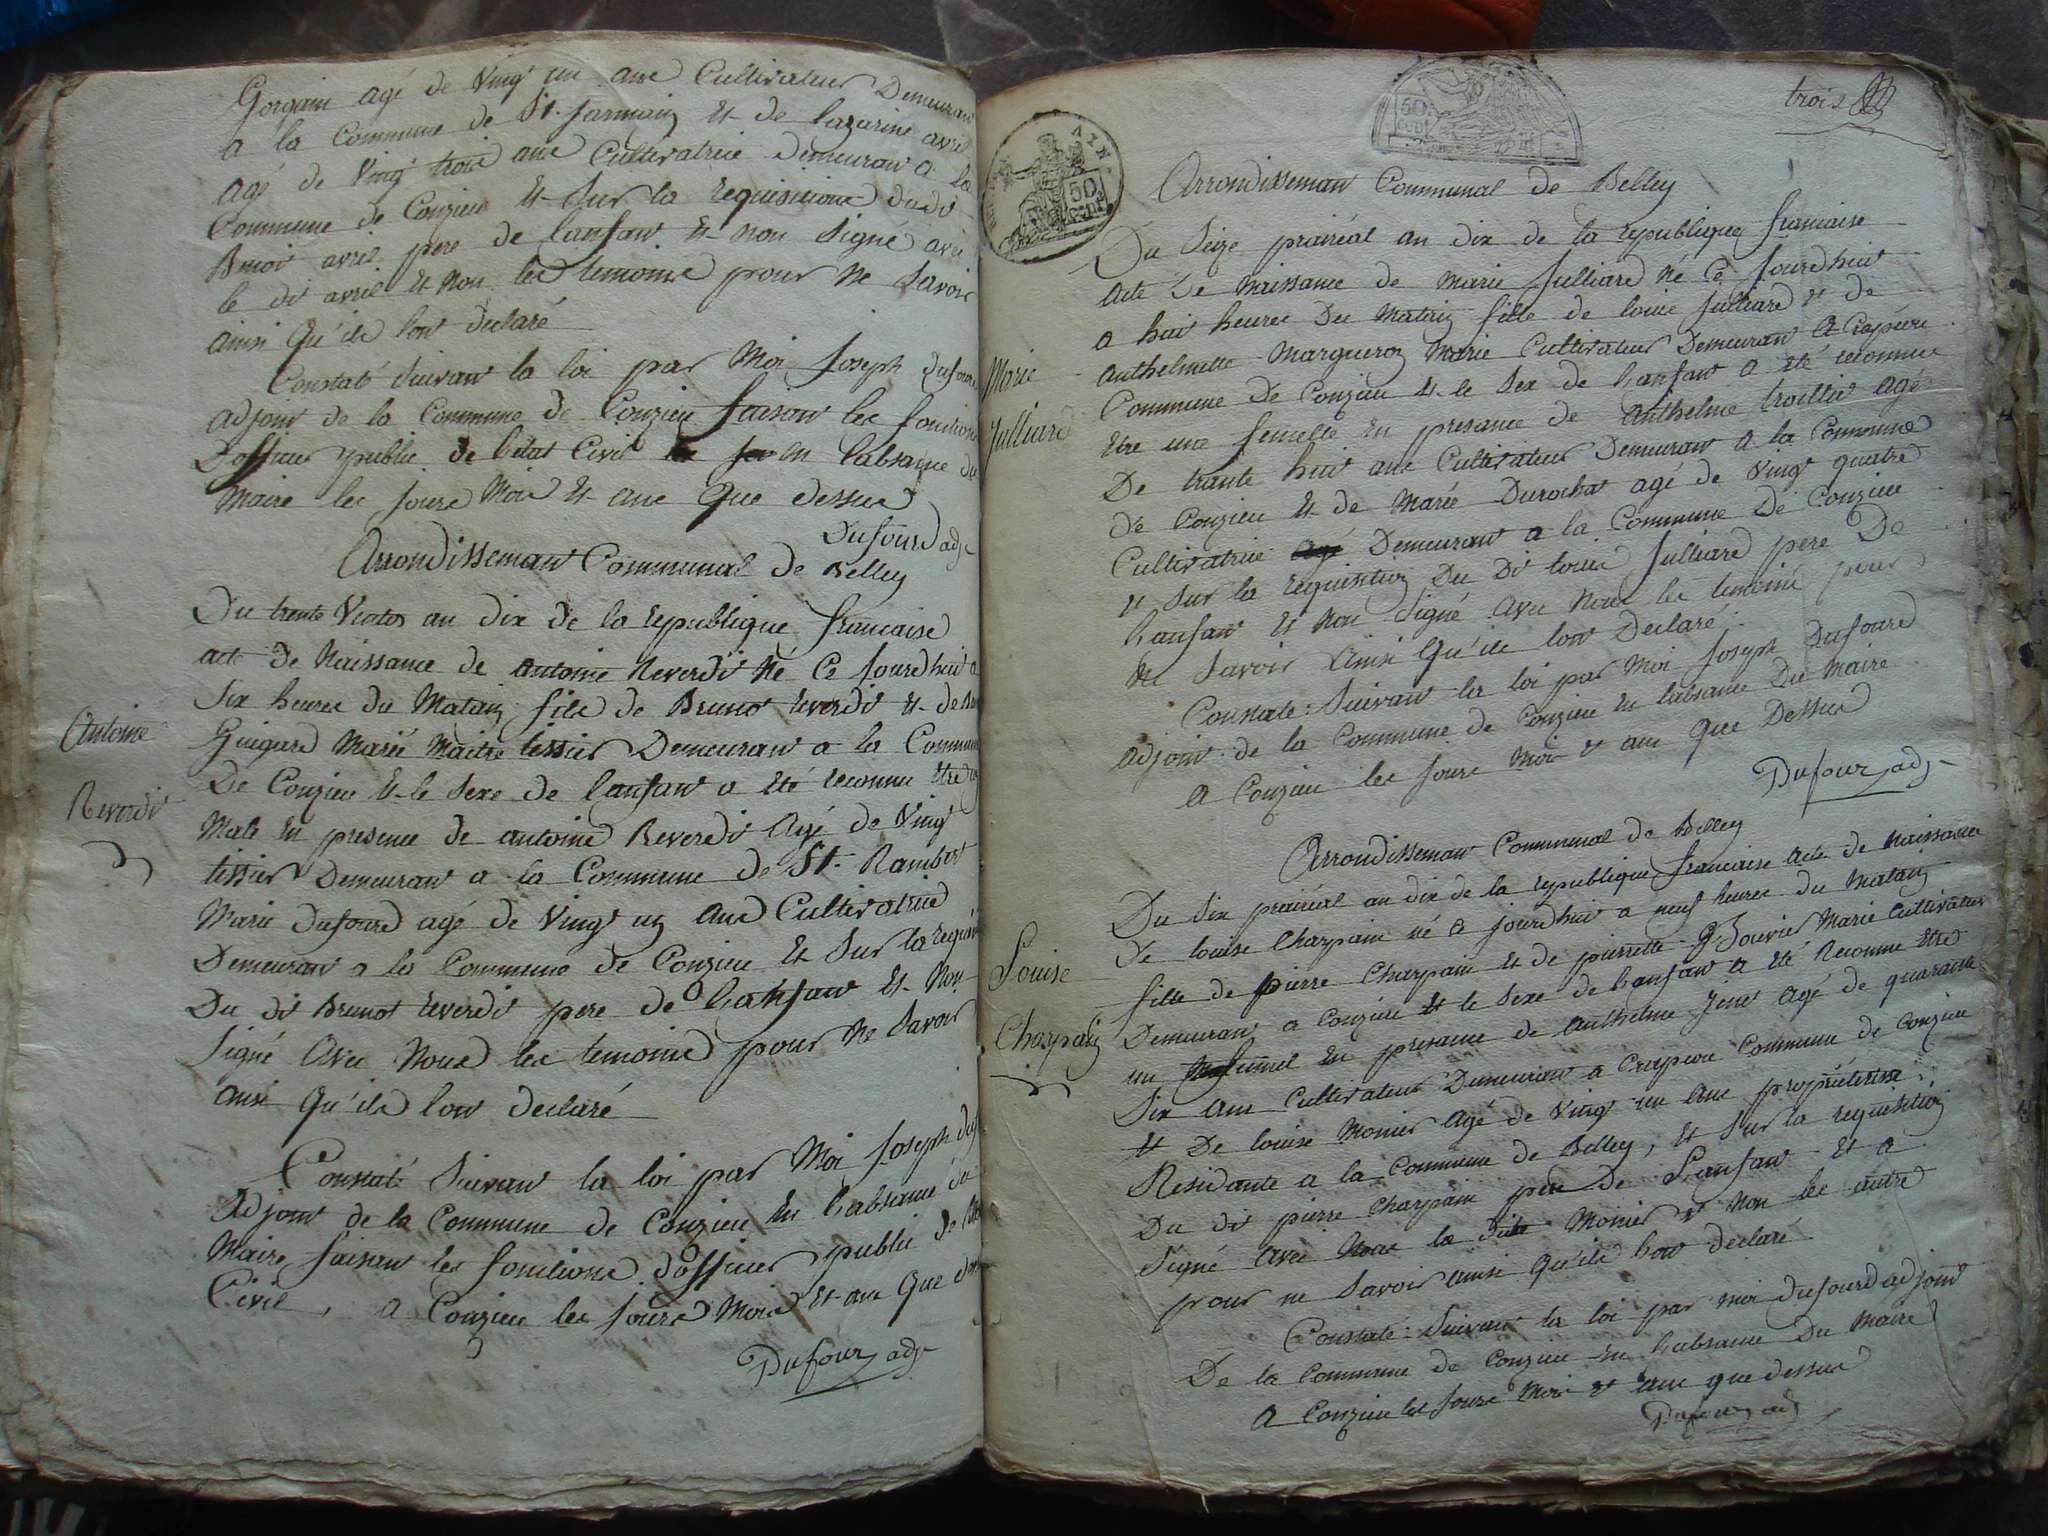 Gorgain agé de Vingt un ans Cultivateur Demeuran
a la Commune de St. Jarmain Et de lazarine avril
agé de Vingt trois ans Cultivatrice demeuran a la
Commune de Conzieu Et Sur la requisitions dudit
Benoit avril pere de lanfan Et non Signé avec
le dit avril Et Non les temoins pour ne Savoir
ainsi Qu'ils lon declaré
Constaté Suivan la loi par Moi Joseph Dufour
adjoin de la Commune de Conzieu faisan les fonctions
Dofficier public de letat Civil en labsance du
Maire les Jours Mois Et ans Que dessus
Dufourd adj
Arrondisseman Communal de Belley
Du trente Vantos an dix de la republique francaise
acte de Naissance de antoine Reverdi Né Ce Jourdhui a
Six heures du Matain fils de Brunot reverdi Et de
Guigard Marié Maitre tessier Demeuran a la Commune
De Conzieu Et le Sexe de lanfan a Eté reconnu Etre
Male En presence de antoine Reverdi Agé de Vingt
tissier Demeuran a la Commune de St. Rambert
Marie dufourd agé de Vingt un ans Cultivatrice
Demeuran a la Commune de Conzieu Et Sur la requi
Du dit Brunot reverdi pere de Lanfan Et Non
Signé avec Nous les temoins pour Ne Savoir
ainsi Qu'ils lon declaré
Constaté Suivan la loi par Moi Joseph duf
Adjoin de la Commune de Conzieu En labsance du
Maire faisan les fonctions dofficier public de
Civil, a Conzieu les Jours Mois Et ans Que
Dufour adj
Antoine
Reverdi
trois
AYN
50
50
Arrondisseman Communal de Belley
Du Seize prairéal an dix de la republique francaise
acte De Naissance de Marie Julliard Né Ce Jourdhui
a huit heures Du Matain fille de louis Julliard et de
Anthelmette Margueron Marié Cultivateur Demeuran A Crapéou
Commune De Conzieu Et le Sex de Lanfan a été reconnue
Etre une femelle En presance de Anthelme trollier agé
De trante huit ans Cultivateur Demeuran a la Commune
De Conzieu Et de Marie Durochat agé de Vingt quatre
Cultivatrice Demeuran a la Commune De Conzieu
et Sur la requisition Du Dit louis Julliard pere De
Lanfan Et Non Signé Avec Nous les temoins pour
Ne Savoir Ainsi Qu'ils lon Declaré
Constate: Suivan la loi par Moi Joseph Dufourd
adjoin de la Commune de Conzieu En labsance Du Maire
A Conzieu les Jours Mois et ans Que Dessus
Dufour adj
Marie
Julliard
Arrondisseman Communal de Belley
Du Six prairéal an dix de la republique francaise Acte de Naissance
De louise Charpain né Ce Jourdhui a neuf heures du Matain
fille de pierre Charpain et de pierrette Marie Cultivateur
Demeuran a Conzieu Et le Sexe de Lanfan a Eté Reconnu Etre
un fumel En presance de Anthelme Jent Agé de quarante
Six ans Cultivateur Demeuran a Crapeou Commune de Conzieu
Et De louise Monier Agé de Vingt un ans proprieterise
Residante a la Commune de Belley, Et Sur la requisition
Du dit pierre Charpain pere de Lanfan Et a
Signé avec Nous la dite Monier et Non les autre
pour ne Savoir ainsi Qu'ils lon declaré
Constaté Suivan la loi par moi dufourd adjoin
De la Commune de Conzieu En Labsance Du Maire
A Conzieu les Jours Mois et ans que dessus
Dufour adj
Louise
Charpain